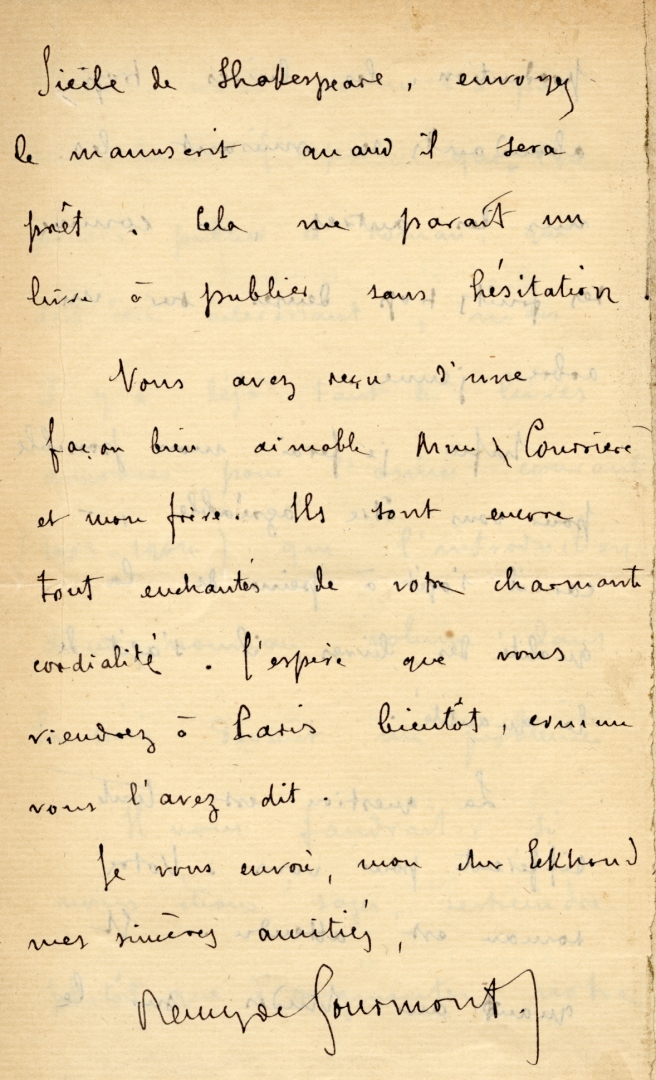 Siècle de Shakespeare, envoyez
le manuscrit quand il sera
prêt. Cela me paraît un
livre à publier sans hésitation.
Vous avez reçu d'une
façon bien aimable Mme Courrière
et mon frère. Ils sont encore
tout enchantés de votre charmante
cordialité. J'espère que vous
viendrez à Paris bientôt, comme
vous l'avez dit.
Je vous envoie, mon cher Eekhoud
mes sincères amitiés,
Remy de Gourmont